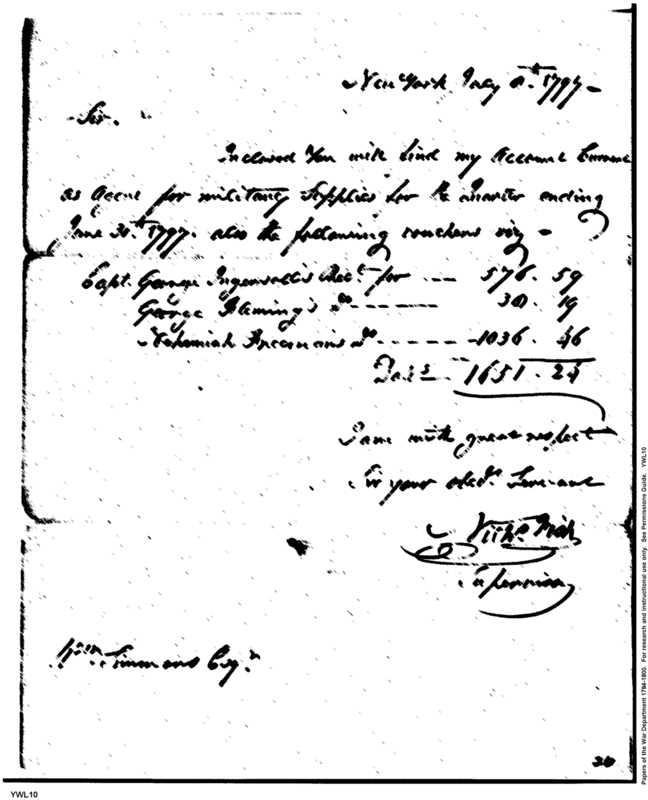 New York July 1797
Sir.
Inclosed You will find my Account Current
as Agent for military Supplies for the Quarter ending
June 30th 1797. also the following vouchers viz
Capt. George Ingersoll's Rect. for --- 576. 59
George Fleming's do ------ 38. 19
Nehemiah Freeman's do ------ 1036. 46
Doll.s 1651. 24
I am with great respect
Sir your Obedt. Servant
Nichs Fish
Supervisor
Wm Simmons Esqr.
YWL10
Papers of the War Department 1784-1800. For research and instructional use only. See Permissions Guide. YWL10